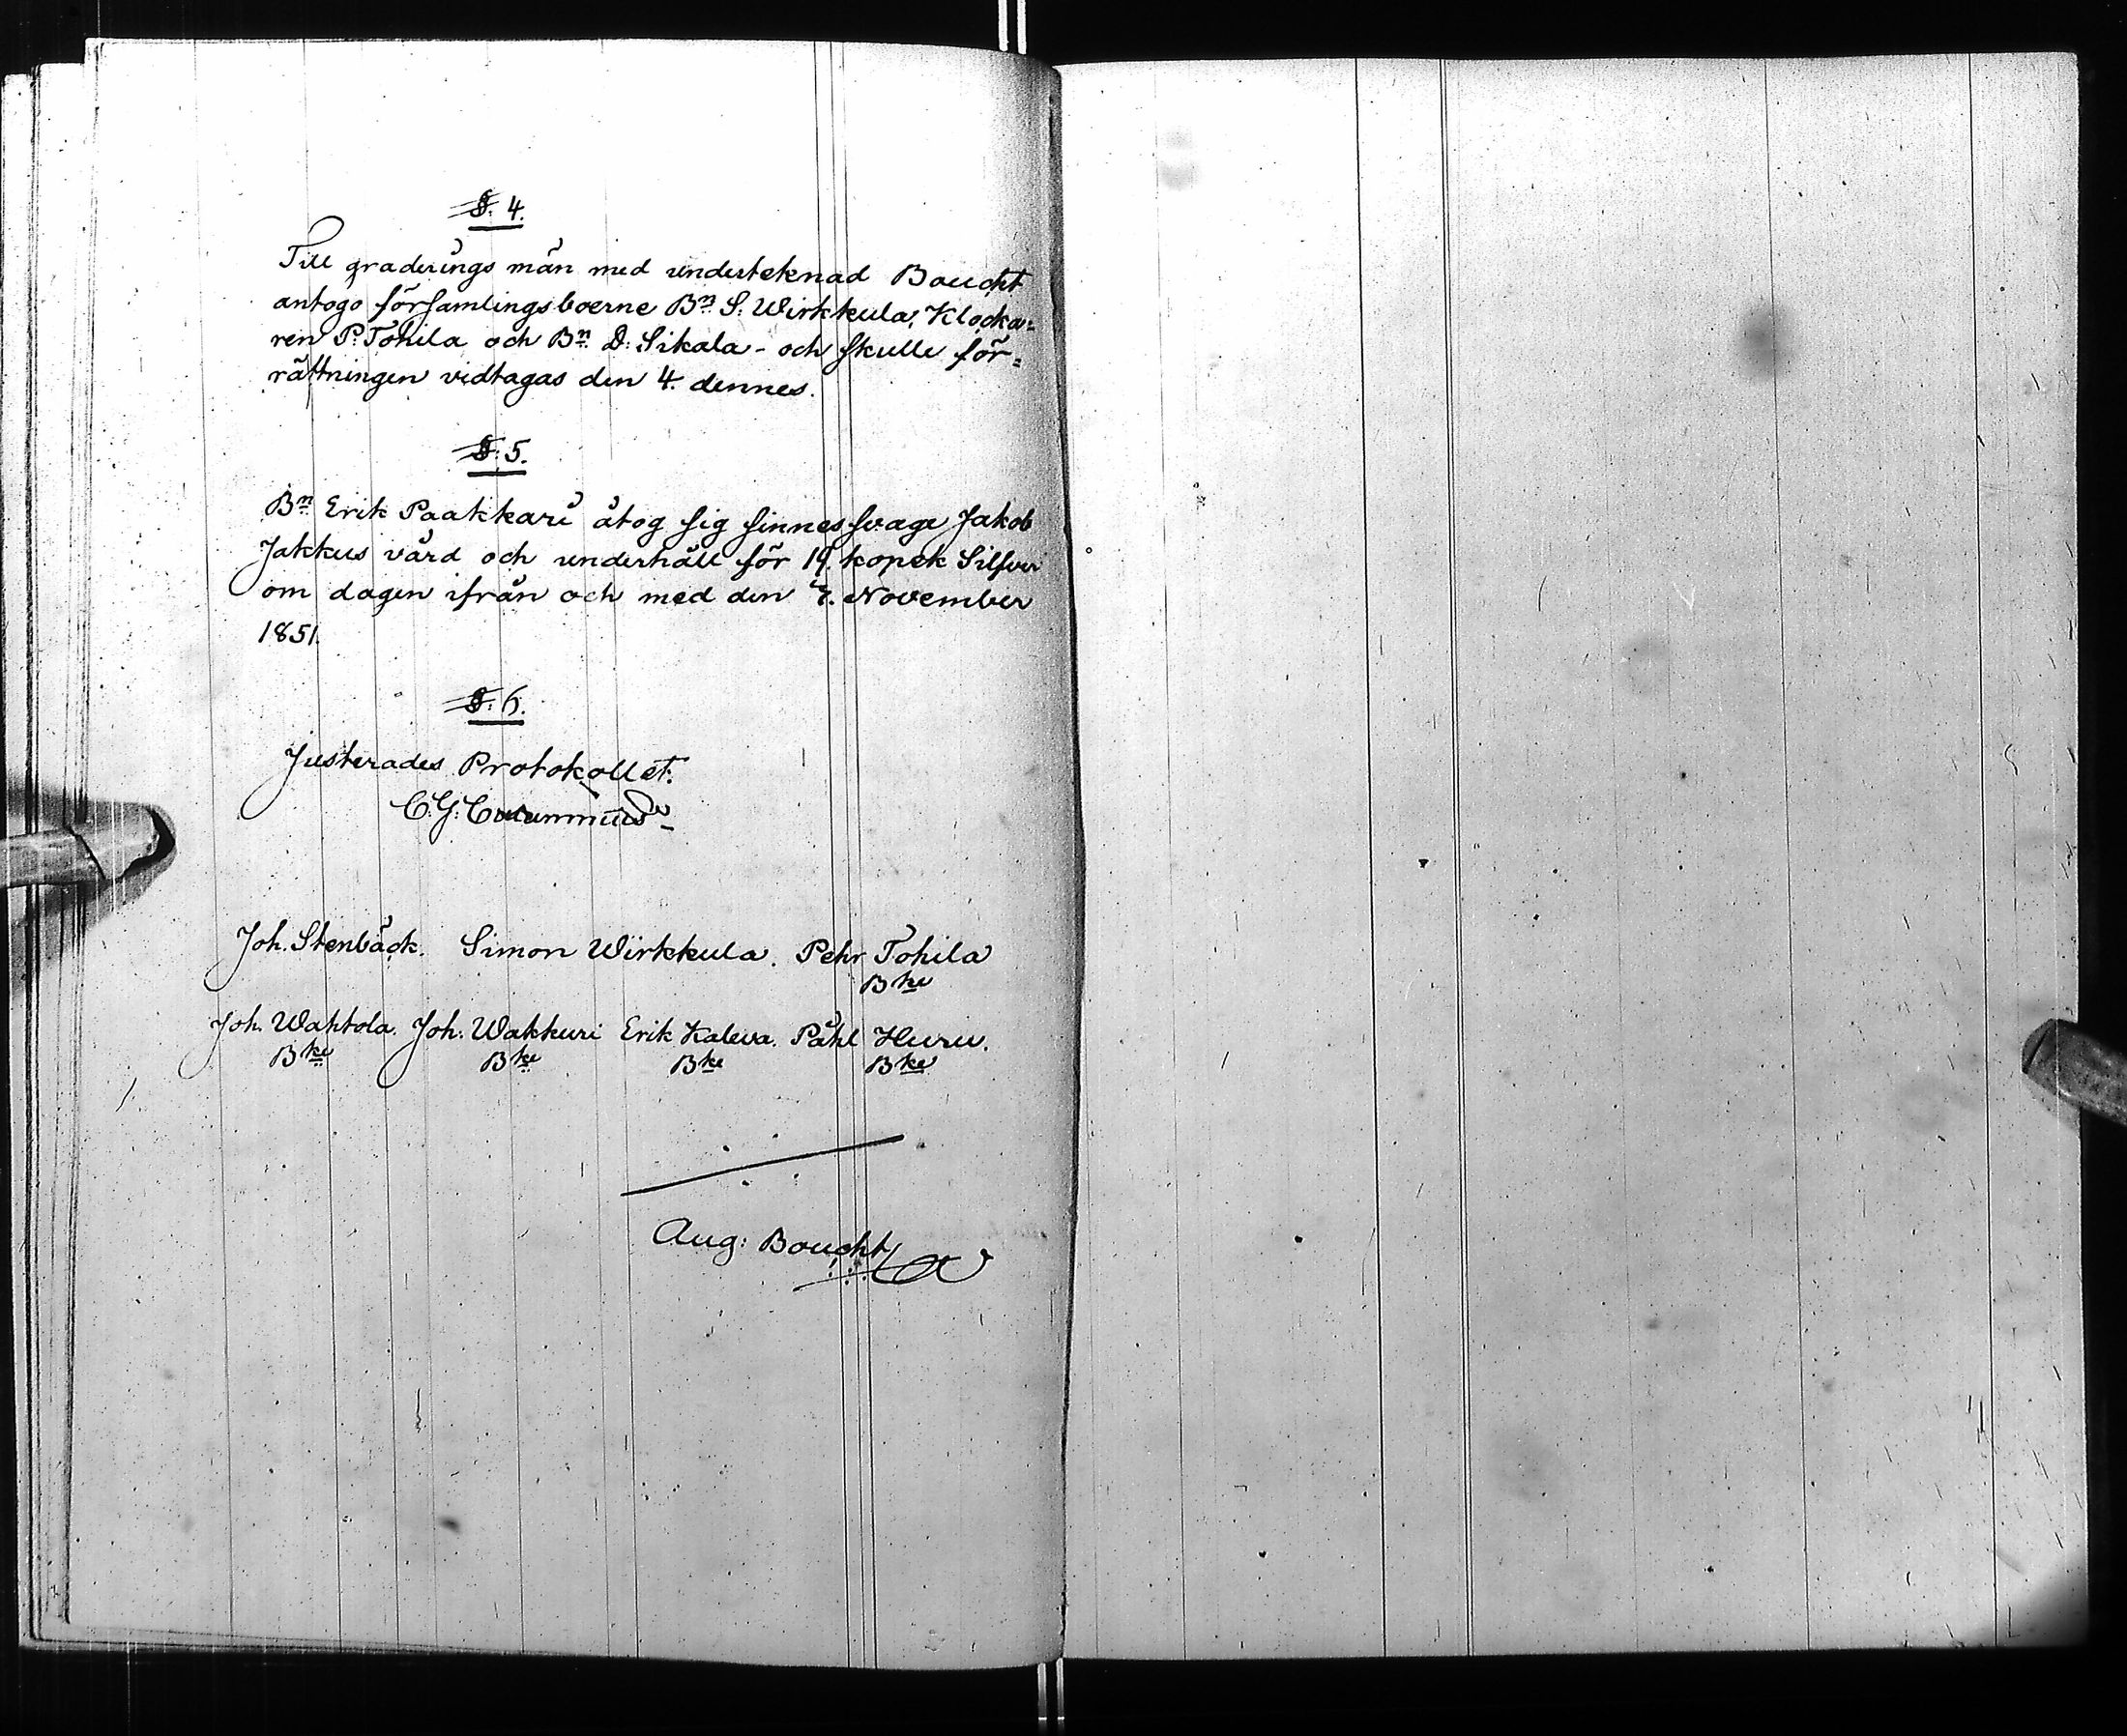 §. 4.
Till graderings män med underteknad Boucht
antogo församlingsboerne Bn S: Wirkkula, Klocka=
ren P: Tohila och Bn D: Sikala - och skulle för=
rättningen vidtagas den 4. dennes.
§: 5.
Bn Erik Paakkari åtog sig sinnessvage Jakob
Jakkus vård och underhåll för 19. kopek Silfver
om dagen ifrån och med den November
1851.
§: 6.
Justerades Protokollet.
C. G.
Joh. Stenbäck. Simon Wirkkula. Pehr Tohila
Bke
Joh. Wahtola. Joh: Wakkuri Erik Kaleva. Påhl Huru.
Bke Bke Bke Bke
Aug: Boucht